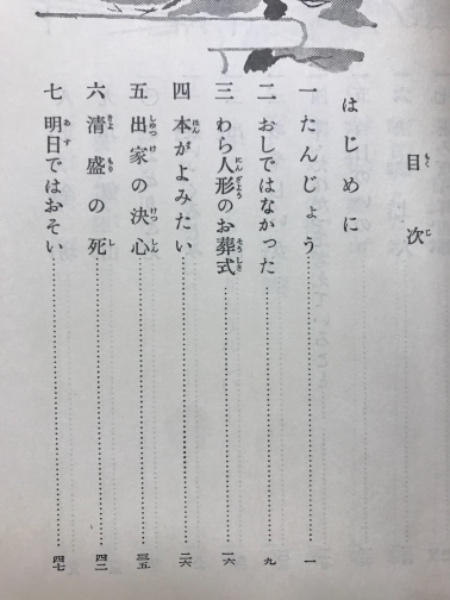 目次
はじめに
一 たんじょう……一
二 おしではなかった……九
三 わら人形のお葬式……一六
四 本がよみたい……二六
五 出家の決心……三五
六 清盛の死……四二
七 明日ではおそい……四七